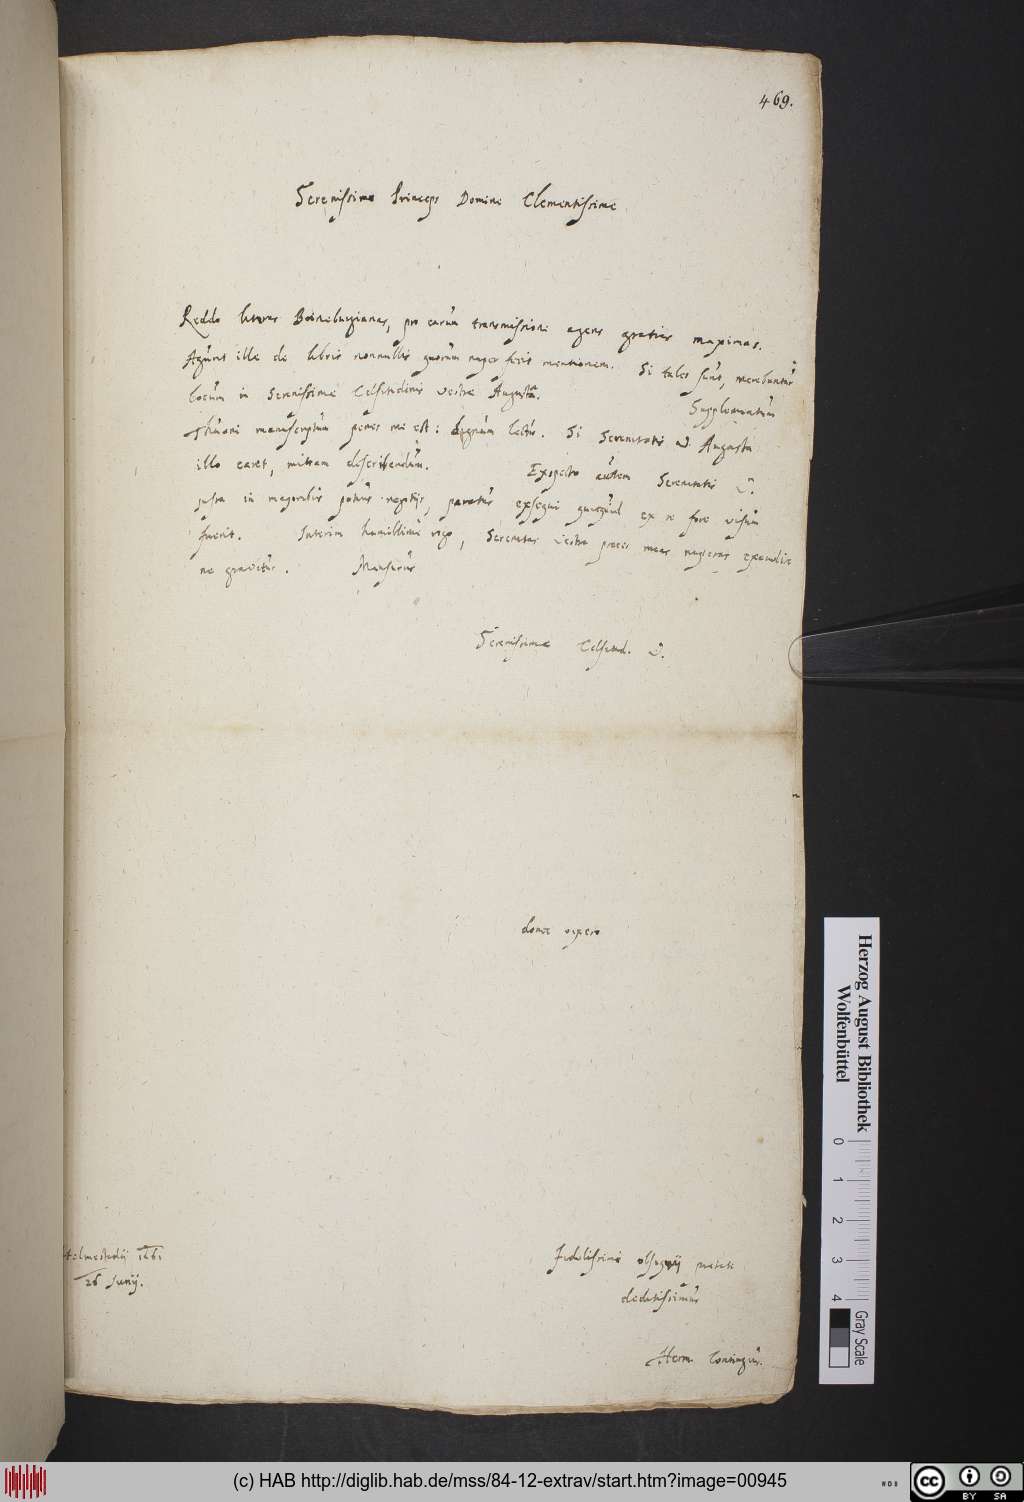 469.
Serenissime Princeps Domine Clementissime
Reddo literas Boineburgianas, pro earum transmissione agens gratias maximas.
Agunt illae de libris nonnullis quorum nuper fecit mentionem. Si tales sunt, merebuntur
locum in Serenissimae Celsitudinis Vestrae Augusta. Supplementum
Thuani manuscriptum penes me est: dignum lectu. Si Serenitatis V. Augusta
illo caret, mittam describendum. Exspecto autem Serenitatis V.
jussa in majoribus negotijs, paratus exsequi quicquid ex re fore visum
fuerit. Interim humillime rogo, Serenitas Vestra preces meas nuperas exaudire
ne gravetur. Mansurus
Serenissimae Celsitud. V.
donec vixero
Helmestadij 1661
26 Junij.
Fidelissimo obsequij
deditissimus
Herm. Conringius.
Herzog August Bibliothek
Wolfenbüttel
0 1 2 3 4
Gray Scale
(c) HAB http://diglib.hab.de/mss/84-12-extrav/start.htm?image=00945
cc BY SA